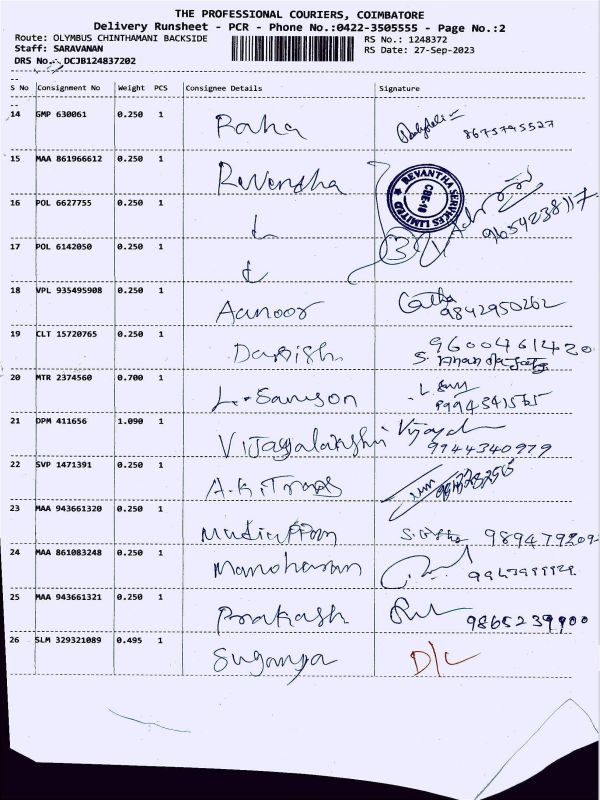 THE PROFESSIONAL COURIERS, COIMBATORE
Delivery Runsheet - PCR - Phone No.:0422-3505555 - Page No.:2
Route: OLYMBUS CHINTHAMANI BACKSIDE RS No.: 1248372
Staff: SARAVANAN RS Date: 27-Sep-2023
DRS No.: DCJB124837202
S No Consignment No Weight PCS Consignee Details Signature
14 GMP 630061 0.250 1 Raha 8675795527
15 MAA 861966612 0.250 1 Revendha
REVANTHA SERVICES LIMITED
CBE-18
16 POL 6627755 0.250 1 9654238117
17 POL 6142050 0.250 1 3
18 VPL 935495908 0.250 1 Aanoor 9842950262
19 CLT 15720765 0.250 1 Darish 9600461420
20 MTR 2374560 0.700 1 L. Samson
21 DPM 411656 1.090 1 Vijayalakshmi 9944340979
22 SVP 1471391 0.250 1 A.K.
23 MAA 943661320 0.250 1 989479209
24 MAA 861083248 0.250 1 Manoharan
25 MAA 943661321 0.250 1 Prakash 9865239900
26 SLM 329321089 0.495 1 Suganya D/L